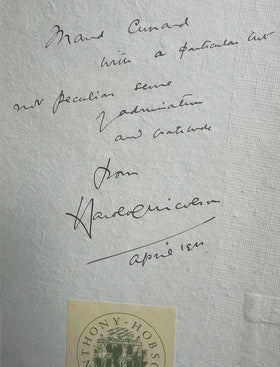 Maud Cunard
with a particular but
not peculiar sense
of admiration
and gratitude
from
Harold Nicolson
April
ANTHONY HOBSON